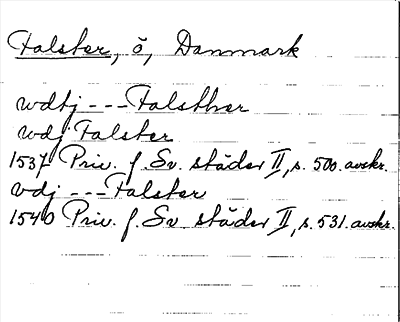 Falster, ö, Danmark
wdtj --- Falsther
wdj Falster
1537 Priv. f. Sv. städer II, s. 500. avskr.
vdj --- Falster
1540 Priv. f. Sv städer II, s. 531. avskr.